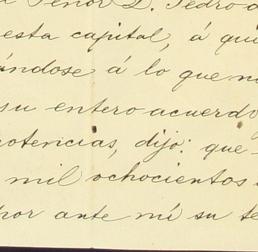 Señor D. Pedro
esta capital, á qui
ándose á lo que m
su entero acuerdo
otencias, dijo: que
mil ochocientos
por ante mi su te